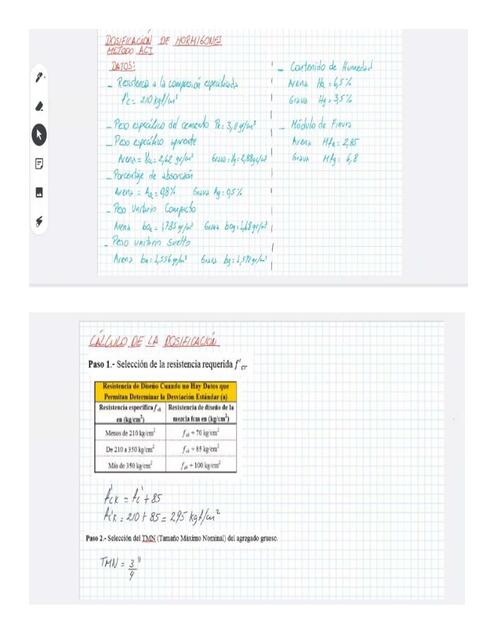 DOSIFICACIÓN DE HORMIGONES
METODO ACI
DATOS:
- Resistencia a la compresión especificada
f'c = 210 kgf/cm²
- Peso específico del cemento
- Peso específico aparente
Arena = Grava =
- Porcentaje de absorción
Arena = 0,8% Grava Ag = 0,5%
- Peso Unitario Compacto
Arena Grava
- Peso unitario Suelto
Arena Grava
- Contenido de Humedad
Arena
Grava Hg = 3,5%
- Módulo de Finura
Arena
Grava
CÁLCULO DE LA DOSIFICACIÓN
Paso 1.- Selección de la resistencia requerida f'cr
Resistencia de Diseño Cuando no Hay Datos que
Permitan Determinar la Desviación Estándar (a)
Resistencia especifica fck Resistencia de diseño de la
en (kg/cm²) mezcla fcm en (kg/cm²)
Menos de 210 kg/cm² fck + 70 kg/cm²
De 210 a 350 kg/cm² fck + 85 kg/cm²
Más de 350 kg/cm² fck + 100 kg/cm²
f'cK = f'c + 85
f'cK = 210 + 85 = 295 kgf/cm²
Paso 2.- Selección del TMN (Tamaño Máximo Nominal) del agregado grueso.
TMN = 3/4"